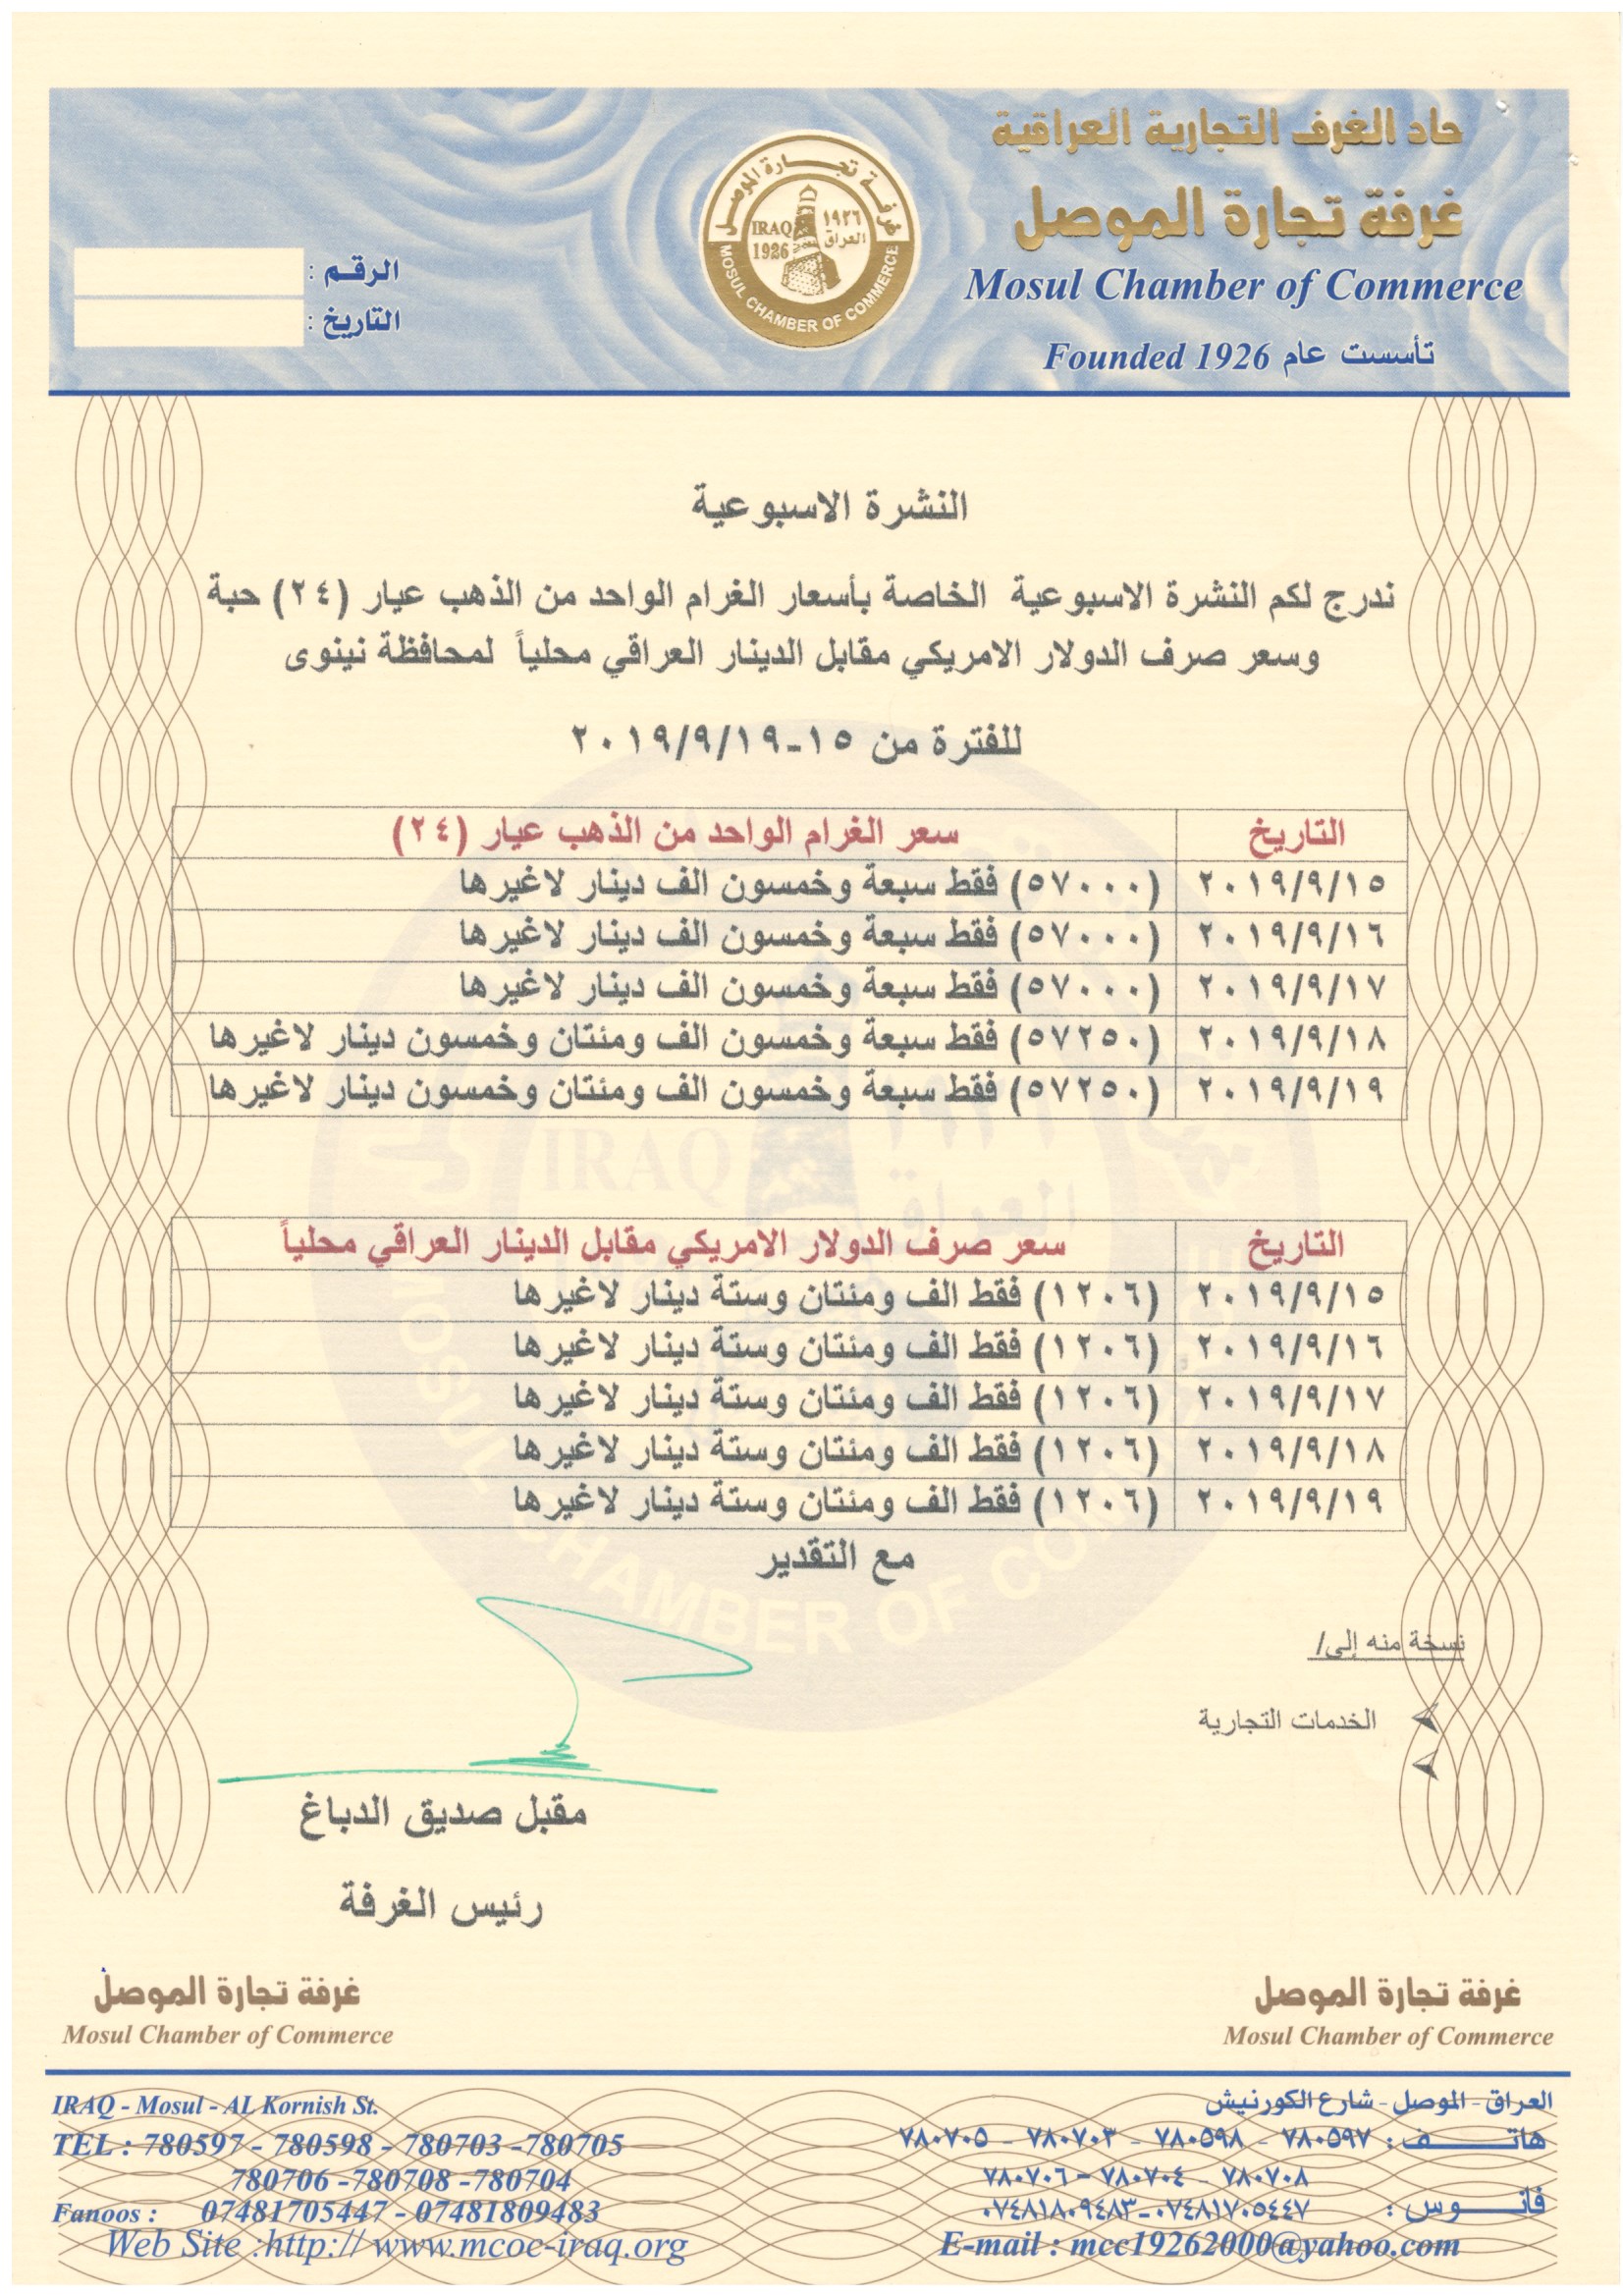 حاد الغرف التجارية العراقية
غرفة تجارة الموصل
Mosul Chamber of Commerce
تأسست عام Founded 1926
غرفة تجارة الموصل
IRAQ 1926
١٩٢٦ العراق
MOSUL CHAMBER OF COMMERCE
الرقم :
التاريخ :
النشرة الاسبوعية
ندرج لكم النشرة الاسبوعية الخاصة بأسعار الغرام الواحد من الذهب عيار (٢٤) حبة
وسعر صرف الدولار الامريكي مقابل الدينار العراقي محلياً لمحافظة نينوى
للفترة من ١٥-٢٠١٩/٩/١٩
التاريخ سعر الغرام الواحد من الذهب عيار (٢٤)
٢٠١٩/٩/١٥ (٥٧٠٠٠) فقط سبعة وخمسون الف دينار لاغيرها
٢٠١٩/٩/١٦ (٥٧٠٠٠) فقط سبعة وخمسون الف دينار لاغيرها
٢٠١٩/٩/١٧ (٥٧٠٠٠) فقط سبعة وخمسون الف دينار لاغيرها
٢٠١٩/٩/١٨ (٥٧٢٥٠) فقط سبعة وخمسون الف ومئتان وخمسون دينار لاغيرها
٢٠١٩/٩/١٩ (٥٧٢٥٠) فقط سبعة وخمسون الف ومئتان وخمسون دينار لاغيرها
التاريخ سعر صرف الدولار الامريكي مقابل الدينار العراقي محلياً
٢٠١٩/٩/١٥ (١٢٠٦) فقط الف ومئتان وستة دينار لاغيرها
٢٠١٩/٩/١٦ (١٢٠٦) فقط الف ومئتان وستة دينار لاغيرها
٢٠١٩/٩/١٧ (١٢٠٦) فقط الف ومئتان وستة دينار لاغيرها
٢٠١٩/٩/١٨ (١٢٠٦) فقط الف ومئتان وستة دينار لاغيرها
٢٠١٩/٩/١٩ (١٢٠٦) فقط الف ومئتان وستة دينار لاغيرها
مع التقدير
نسخة منه إلى/
الخدمات التجارية
مقبل صديق الدباغ
رئيس الغرفة
غرفة تجارة الموصل
Mosul Chamber of Commerce
غرفة تجارة الموصل
Mosul Chamber of Commerce
العراق - الموصل - شارع الكورنيش
هاتف : ٧٨٠٥٩٧ - ٧٨٠٥٩٨ - ٧٨٠٧٠٣ - ٧٨٠٧٠٥
٧٨٠٧٠٨ - ٧٨٠٧٠٤ - ٧٨٠٧٠٦
فانوس : ٠٧٤٨١٧٠٥٤٤٧-٠٧٤٨١٨٠٩٤٨٣
E-mail : mcc19262000@yahoo.com
IRAQ - Mosul - AL Kornish St.
TEL : 780597 - 780598 - 780703 -780705
780706 -780708 -780704
Fanoos : 07481705447 - 07481809483
Web Site :http:// www.mcoc-iraq.org